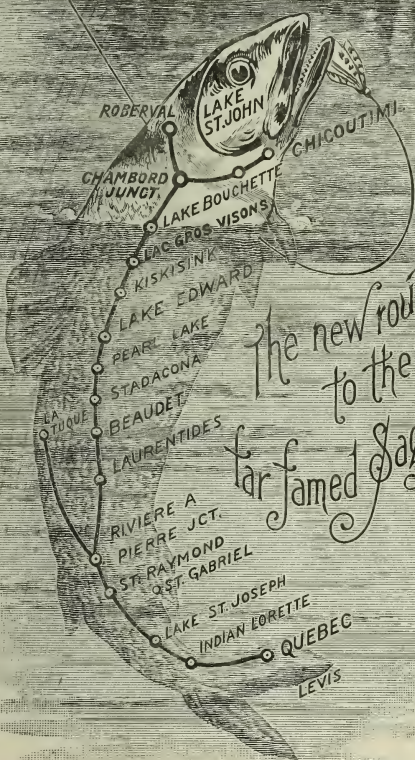 ROBERVAL
LAKE
ST. JOHN
CHICOUTIMI.
CHAMBORD
JUNCT.
LAKE BOUCHETTE
LAC GROS VISONS
KISKISINK
LAKE EDWARD
PEARL LAKE
STADACONA
BEAUDET
LA
TUQUE
LAURENTIDES
The new
to the
far famed
RIVIERE A
PIERRE JCT.
ST. RAYMOND
ST. GABRIEL
LAKE ST. JOSEPH
INDIAN LORETTE
QUEBEC
LEVIS